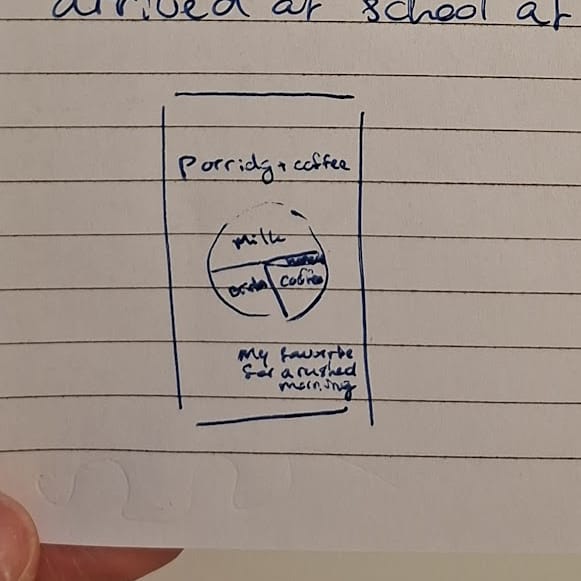 arrived at school at
Porridg + coffee
milk
coffee
My favourite
for a rushed
morning